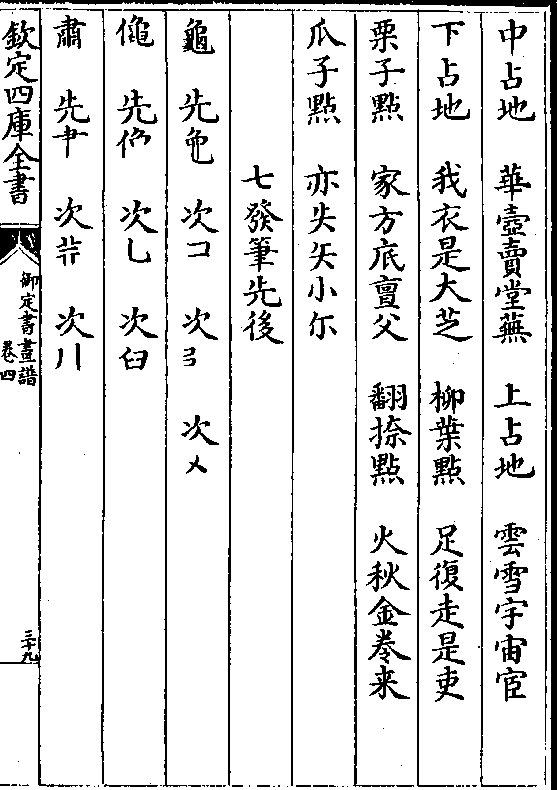 中占地　華壺賣堂蕪　上占地　雲雪宇宙官
下占地　我衣是大芝　柳葉點　足復走是吏
栗子點　家方底亶父　翻捺點　火秋金卷来
瓜子點　亦失矢小尔
七發筆先後
龜　先　次コ　次ヨ　次乂
先　次乚　次臼
肅　先肀　次　次丿丨
欽定四庫全書
御定書畫譜
卷四
三十九